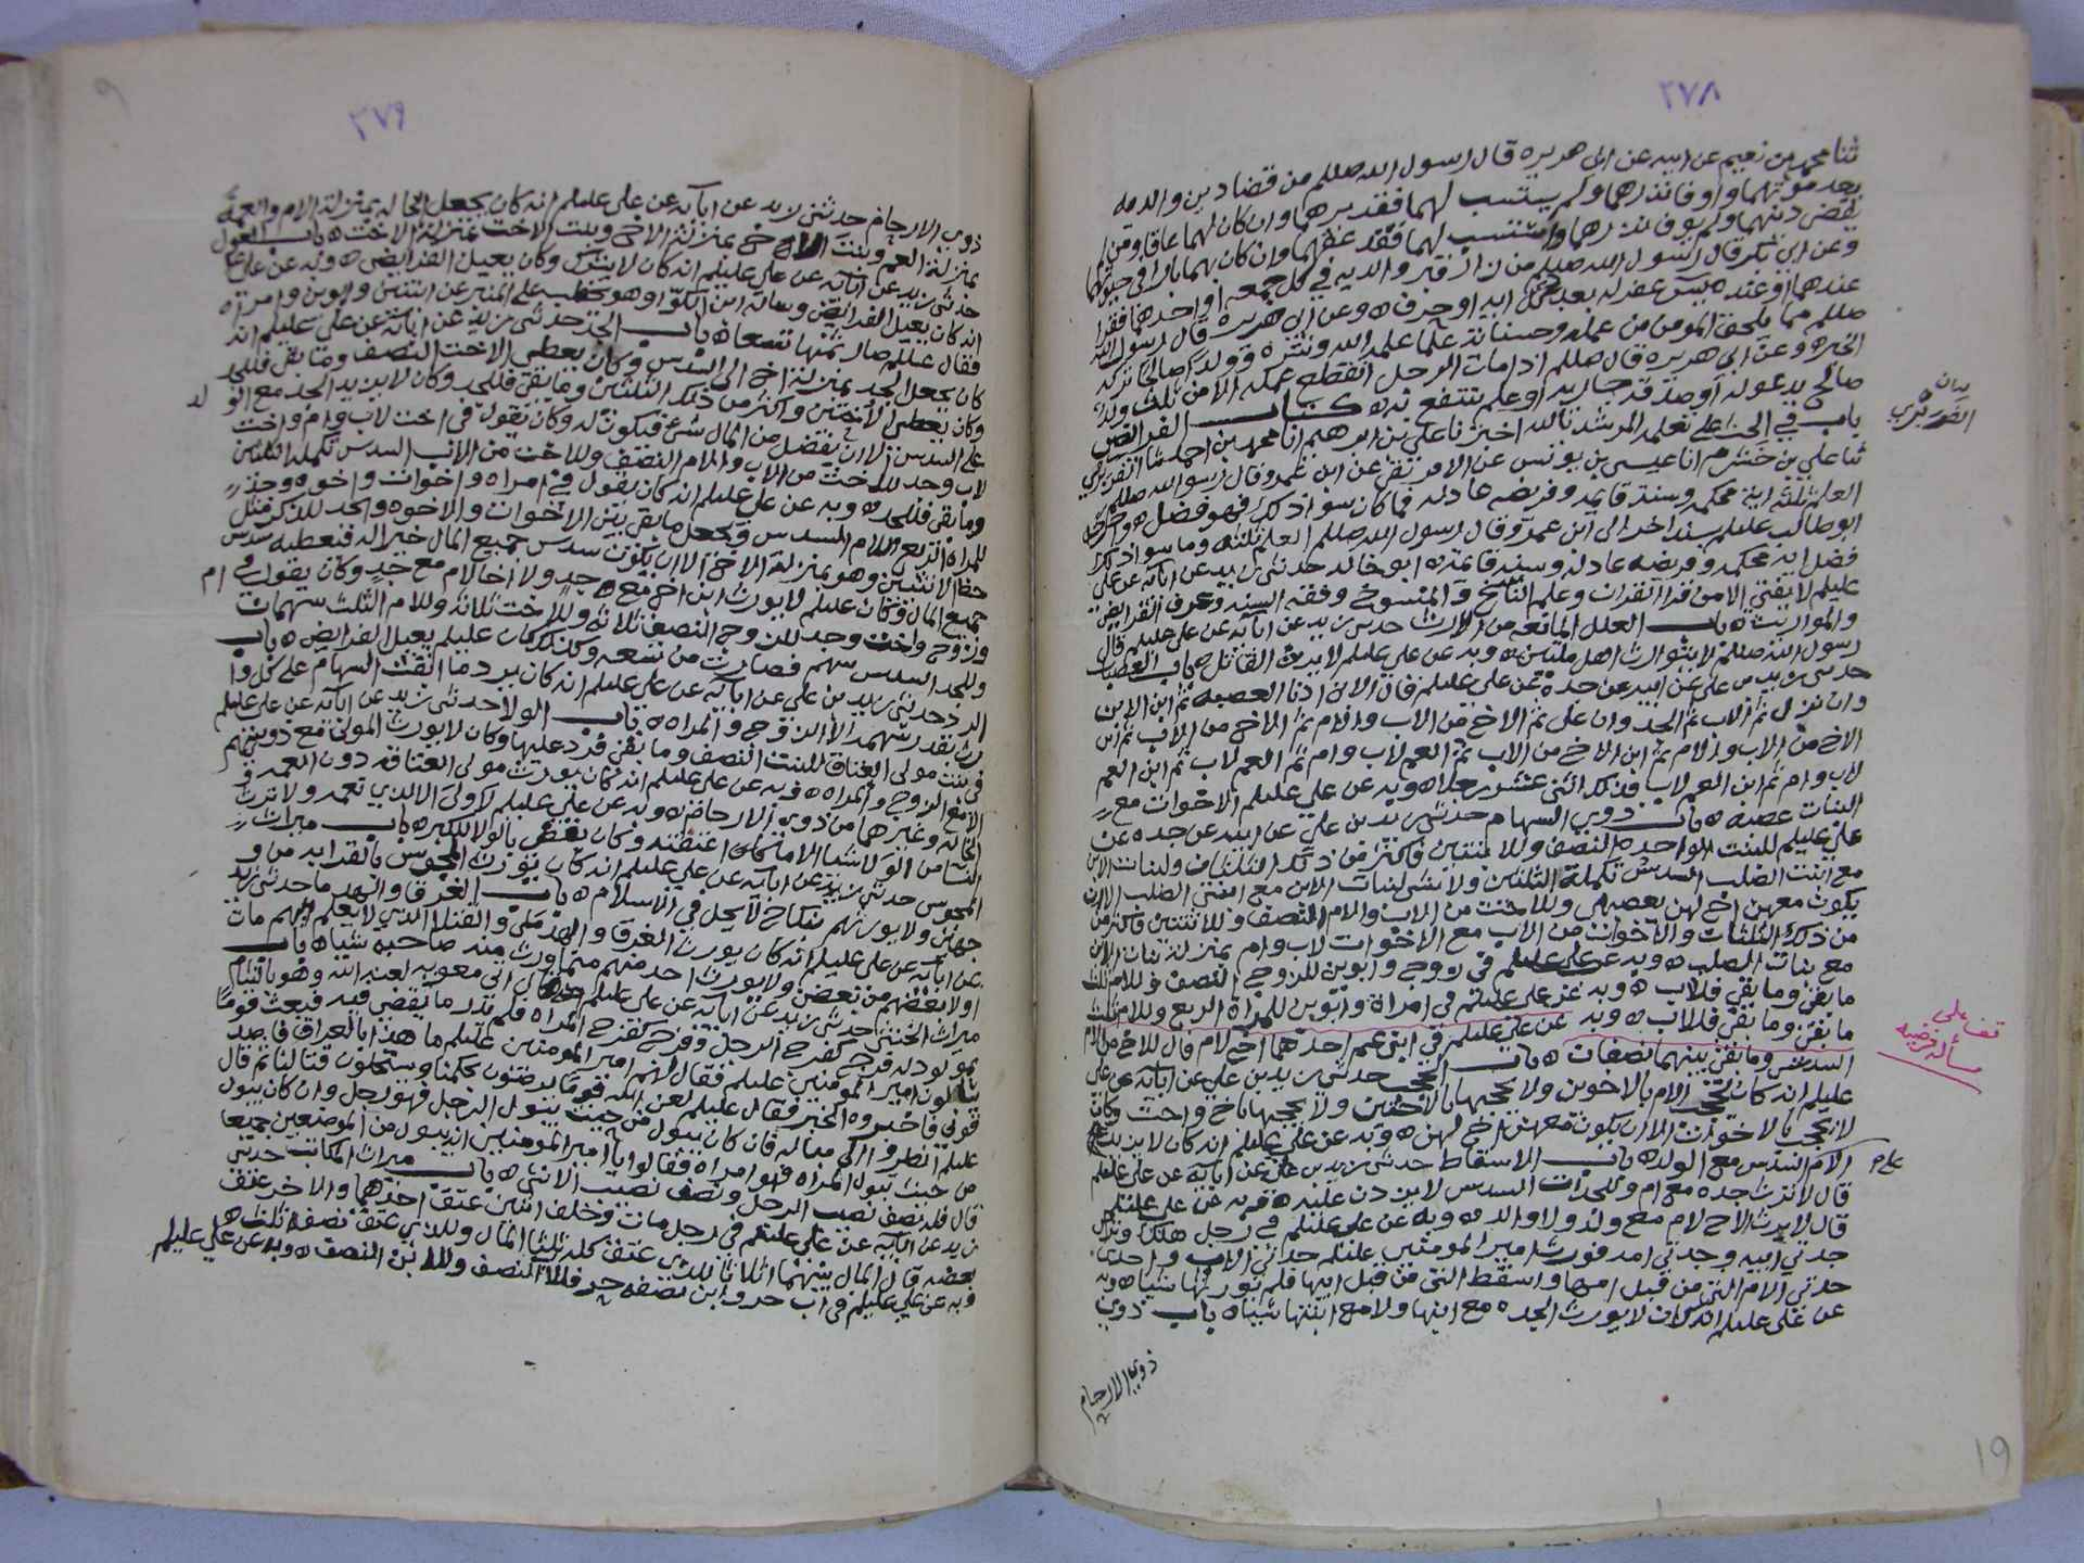 ٢٧٨
ثنا محمد بن نعيم عن ابيه عن ابى هريره قال رسول الله صللم من قضا دين والديه
بعد موتهما واوفا نذرهما ولم يستسب لهما فقد برهما وان كان لهما عاقا ومن لم
يقض دينهما ولم يوف نذرهما واستسب لهما فقد عقهما وان كان بهما بارا في حيوتهما
وعن ابى بكر قال رسول الله صللم من زار قبر والديه في كل جمعه او احدهما فقرا
عندهما او عنده يس غفر له بعدد كل ايه او حرف ه وعن ابى هريره قال رسول الله
صللم مما يلحق المومن من عمله وحسناته علما علمه الله ونشره وولدا صالحا تركه
الخبر ه وعن ابى هريره قال صللم اذا مات الرجل انقطع عمله الا من ثلث ولد
صالح يدعو له او صدقه جاريه او علم ينتفع به ه كتاب الفرائض
باب في الحث على تعلمه المرشد بالله اخبرنا على بن ابرهيم انا محمد بن احمد ثنا الفربري
ثنا علي بن خشرم انا عيسى بن يونس عن الافريقى عن ابن عمرو قال رسول الله صللم
العلم ثلثه ايه محكمه وسنه قايمه وفريضه عادله فما كان سوا ذلك فهو فضل ه واخرجه
ابو طالب عليلم بسند اخر الى ابن عمرو قال رسول الله صللم العلم ثلثه وما سوا ذلك
فضل ايه محكمه وفريضه عادله وسنه قائمه ه ابو خالد حدثنى زيد عن ابائه عن علي
عليلم لا يفتى الا من قرا القران وعلم الناسخ والمنسوخ وفقه السنه وعرف الفرايض
والمواريث ه باب العلل المانعه من الارث حدثنى زيد عن ابائه عن على عليلم قال
رسول الله صللم لا يتوارث اهل ملتين ه وبه عن علي عليلم لا يرث القاتل ه باب العصبات
حدثنى زيد بن على عن ابيه عن جده عن علي عليلم قال الابن ادنا العصبه ثم ابن الابن
وان نزل ثم الاب ثم الجد وان على ثم الاخ من الاب والام ثم الاخ من الاب ثم ابن
الاخ من الاب والام ثم ابن الاخ من الاب ثم العم لاب وام ثم العم لاب ثم ابن العم
لاب وام ثم ابن العم لاب فذلك اثنى عشر رجلا ه وبه عن علي عليلم الاخوات مع
البنات عصبه ه باب ذوي السهام حدثنى زيد بن علي عن ابيه عن جده عن
علي عليلم للبنت الواحده النصف وللابنتين فاكثر من ذلك الثلثان ولبنات الابن
مع ابنت الصلب السدس تكملة الثلثين ولا شى لبنات الابن مع ابنتى الصلب الا ان
يكون معهن اخ لهن يعصبهن وللاخت من الاب والام النصف وللاثنتين فاكثر من
من ذلك الثلثان والاخوات من الاب مع الاخوات لاب وام بمنزلة بنات الابن
مع بنات الصلب ه وبه عن على عليلم في زوج وابوين للزوج النصف وللام ثلث
ما بقى وما بقى فللاب ه وبه عن على عليلم في امراة وابوين للمراة الربع وللام ثلث
ما بقى وما بقى فللاب ه وبه عن علي عليلم في ابنى عم احدهما اخ لام قال للاخ من الام
السدس وما بقى بينهما نصفان ه باب الحجب حدثنى زيد بن علي عن ابائه عن على
عليلم انه كان يحجب الام بالاخوين ولا يحجبها بالاختين ولا يحجبها باخ واخت وكان
لا يحجب بالاخوات الا ان يكون معهن اخ لهن ه وبه عن علي عليلم انه كان لا يزيد
الام السدس مع الولد ه باب الاسقاط حدثنى زيد بن على عن ابائه عن على عليلم
قال لا ترث جده مع ام وللجدات السدس لا يزدن عليه ه وبه عن على عليلم
قال لا يرث الاخ لام مع ولد ولا والد ه وبه عن على عليلم في رجل هلك وترك
جدتي ابيه وجدتي امه فورث امير المومنين عليلم جدتي الاب واحدى
جدتي الام التى من قبل امها واسقط التى من قبل ابيها فلم يورثها شيا ه وبه
عن على عليلم انه كان لا يورث الجده مع ابنها ولا مع ابنتها شيا ه باب ذوي
ذوي الارحام
بيان
الفربري
قضا على
مسألة فرضيه
٢٧٩
ذوي الارحام حدثنى زيد عن ابائه عن على عليلم انه كان يجعل الخاله بمنزلة الام والعمه
بمنزلة العم وبنت الاخ بمنزلة الاخ وبنت الاخت بمنزلة الاخت ه باب العول
حدثنى زيد عن ابائه عن على عليلم انه كان لا يشرك وكان يعيل الفرايض ه وبه عن على
انه كان يعيل الفرايض وساله ابن الكوا وهو يخطب على المنبر عن ابنتين وابوين وامراه
فقال عليلم صار ثمنها تسعا ه باب الجد حدثنى زيد عن ابائه عن علي عليلم انه
كان يجعل الجد بمنزلة اخ الى السدس وكان يعطي الاخت النصف وما بقى فللجد
وكان يعطي الاختين واكثر من ذلك الثلثين وما بقى فللجد وكان لا يزيد الجد مع الو لد
على السدس الا ان يفضل من المال شى فيكون له وكان يقول في اخت لاب وام واخت
لاب وجد للاخت من الاب والام النصف وللاخت من الاب السدس تكملة الثلثين
وما بقى فللجد ه وبه عن علي عليلم انه كان يقول في امراه واخوات واخوه وجد
للمراه الربع وللام السدس ويجعل ما بقى بين الاخوات والاخوه والجد للذكر مثل
حظ الانثيين وهو بمنزلة الاخ الا ان يكون سدس جميع المال خيرا له فنعطيه سدس
جميع المال وكان عليلم لا يورث ابن اخ مع جد ولا اخا لام مع جد وكان يقول في ام
وزوج واخت وجد للزوج النصف ثلاثه وللاخت ثلاثه وللام الثلث سهمان
وللجد السدس سهم فصارت من تسعه وكذلك كان عليلم يعيل الفرايض ه باب
الرد حدثنى زيد بن علي عن ابائه عن علي عليلم انه كان يرد ما ابقت السهام على كل وا
رث بقدر سهمه الا الزوج والمراه ه باب الولا حدثنى زيد عن ابائه عن على عليلم
في بنت مولى العتاق للبنت النصف وما بقى فرد عليها وكان لا يورث المولى مع ذوي سهم
الا مع الزوج والمراه ه وبه عن على عليلم انه كان يورث مولى العتاقه دون العمه و
الخاله وغيرهما من ذوي الارحام ه وبه عن علي عليلم لا ولى الا لذي نعمه ولا ترث
النسا من الولا شيا الا ما اعتقنه وكان يقضى بالولا للكبر ه باب ميراث
المجوس حدثنى زيد عن ابائه عن علي عليلم انه كان يورث المجوس بالقرابه من و
جهين ولا يورثهم بنكاح لا يحل في الاسلام ه باب الغرقا والهدما حدثنى زيد
عن ابائه عن على عليلم انه كان يورث الغرقا والهدمى والقتلا الذي لا يعلم ايهم مات
اولا بعضهم من بعض ولا يورث احد منهم مما ورث منه صاحبه شيا ه باب
ميراث الخنثى حدثنى زيد عن ابائه عن على عليلم قال اتى معويه لعنه الله وهو بالشام
بمولود له فرج كفرج الرجل وفرج كفرج المراه فلم يدر ما يقضي فيه فبعث قوما
يسالون امير المومنين عليلم فقال لهم امير المومنين عليلم ما هذا بالعراق فاصد
قوني فاخبروه الخبر فقال عليلم لعن الله قوما يرضون بحكمنا ويستحلون قتالنا ثم قال
عليلم انظروا الى مباله فان كان يبول من حيث يبول الرجل فهو رجل وان كان يبول
من حيث تبول المراه فهو امراه فقالوا يا امير المومنين انه يبول من الموضعين جميعا
قال فله نصف نصيب الرجل ونصف نصيب الانثى ه باب ميراث المكاتب حدثنى
زيد عن ابائه عن على عليلم في رجل مات وخلف ابنين عتق احدهما والاخر عتق
بعضه قال المال بينهما اثلاثا للذي عتق كله ثلثا المال وللذي عتق نصفه الثلث ه
وبه عن علي عليلم في اب حر وابن نصفه حر فللاب النصف وللابن النصف ه وبه عن علي عليلم